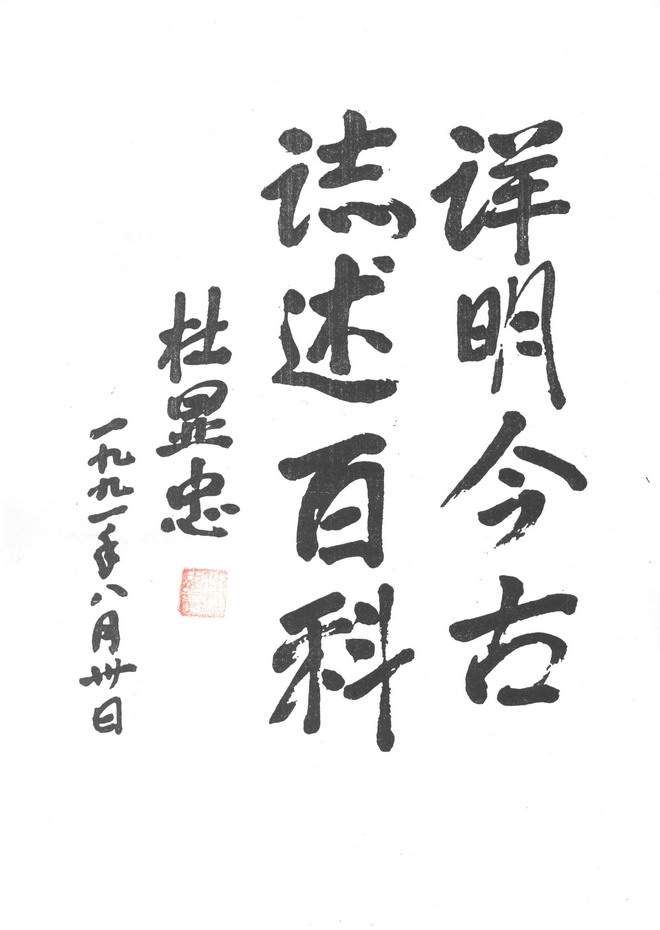 详明今古
誌述百科
杜显忠
一九九一年八月卅日